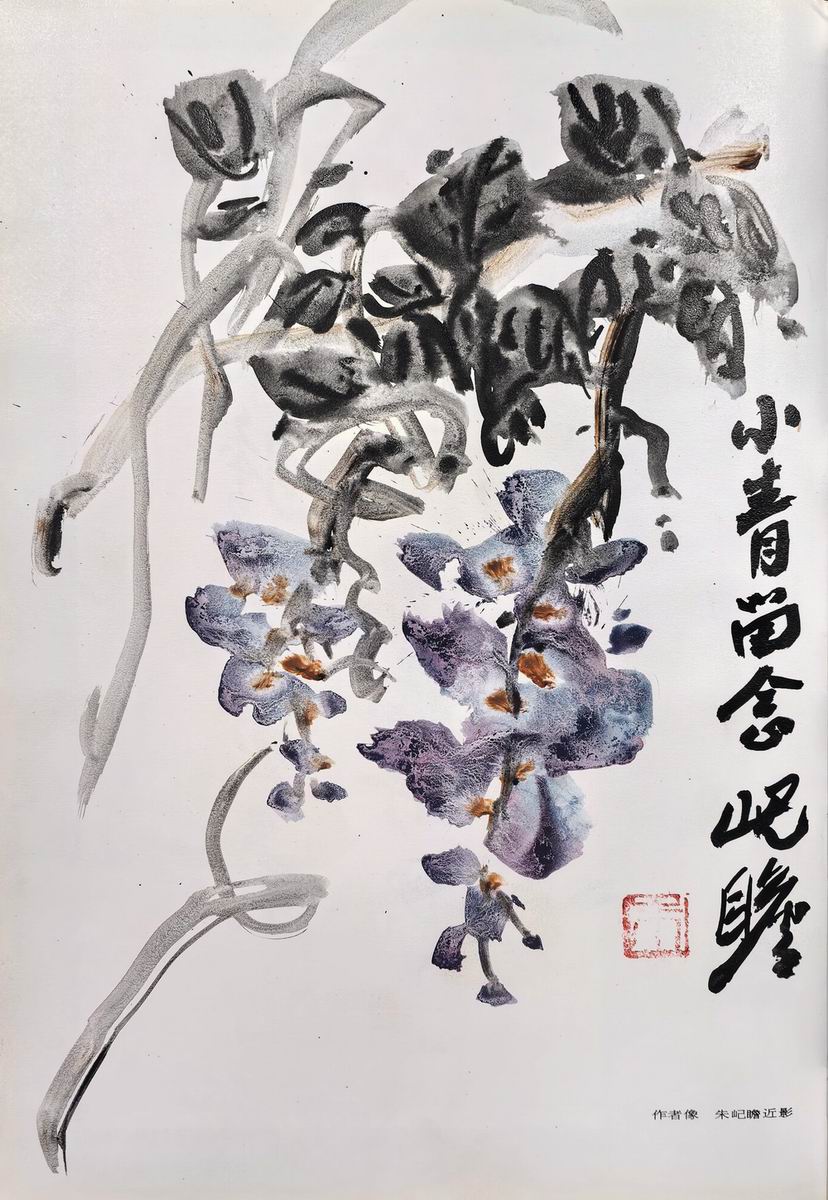 小青留念 屺瞻
作者像 朱屺瞻近影